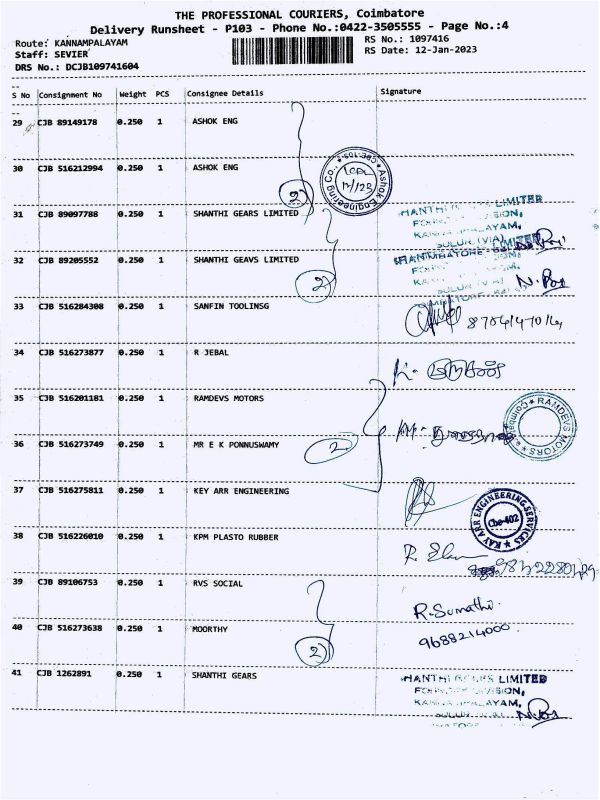 THE PROFESSIONAL COURIERS, Coimbatore
Delivery Runsheet - P103 - Phone No.:0422-3505555 - Page No.:4
Route: KANNAMPALAYAM
RS No.: 1097416
Staff: SEVIER
RS Date: 12-Jan-2023
DRS No.: DCJB109741604
S No Consignment No Weight PCS Consignee Details Signature
29 CJB 89149178 0.250 1 ASHOK ENG
30 CJB 516212994 0.250 1 ASHOK ENG
Ashok Engineering Co., CBE-105
2
31 CJB 89097788 0.250 1 SHANTHI GEARS LIMITED
LIMITED
SION,
KANNAMPALAYAM,
SULUR (VIA)
32 CJB 89205552 0.250 1 SHANTHI GEAVS LIMITED
2
33 CJB 516284308 0.250 1 SANFIN TOOLINSG
34 CJB 516273877 0.250 1 R JEBAL
35 CJB 516201181 0.250 1 RAMDEVS MOTORS
RAMDEVS MOTORS
36 CJB 516273749 0.250 1 MR E K PONNUSWAMY
2
37 CJB 516275811 0.250 1 KEY ARR ENGINEERING
KAY ARR ENGINEERING SERVICES
Cbe-402
38 CJB 516226010 0.250 1 KPM PLASTO RUBBER
39 CJB 89106753 0.250 1 RVS SOCIAL
R. Sumathi
40 CJB 516273638 0.250 1 MOORTHY
9688214000
2
41 CJB 1262891 0.250 1 SHANTHI GEARS
LIMITED